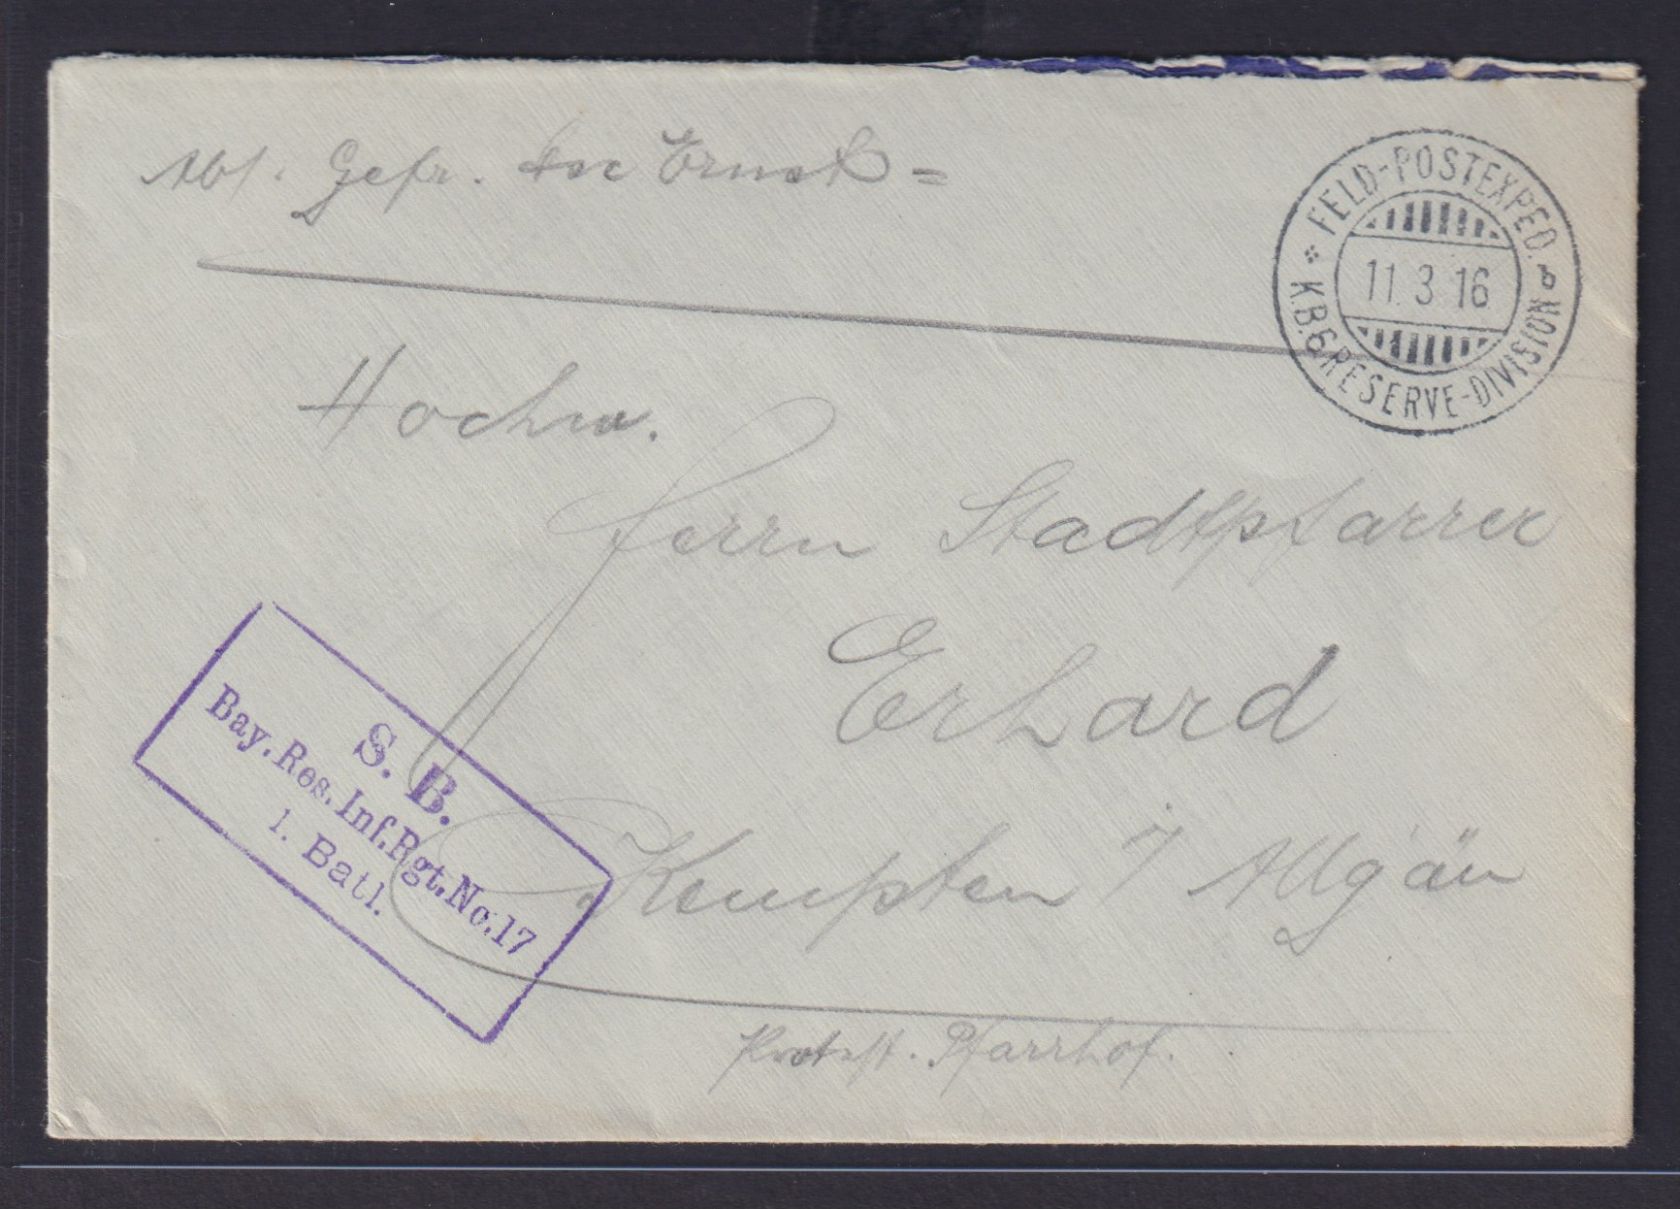 Abs. Gefr. Ernst =
FELD-POSTEXPED. b
11. 3 16
* K.B.6 RESERVE-DIVISION
Hochw.
Herrn Stadtpfarrer
Erhard
S. B.
Bay. Res. Inf. Rgt. No. 17
1. Batl.
Kempten / Allgäu
Protest. Pfarrhof.